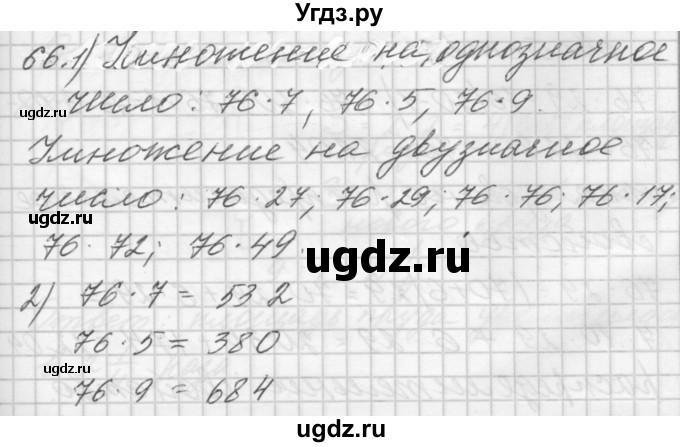 Угдз.ру
66.1) Умножение на однозначное
число: 76·7, 76·5, 76·9.
ugdz.ru ugdz.ru
Умножение на двузначное
число: 76·27; 76·29; 76·76; 76·17;
ugdz.ru
76·72; 76·49.
ugdz.ru
2) 76·7 = 532
76·5 = 380
ugdz.ru ugdz.ru
76·9 = 684
ugdz.ru